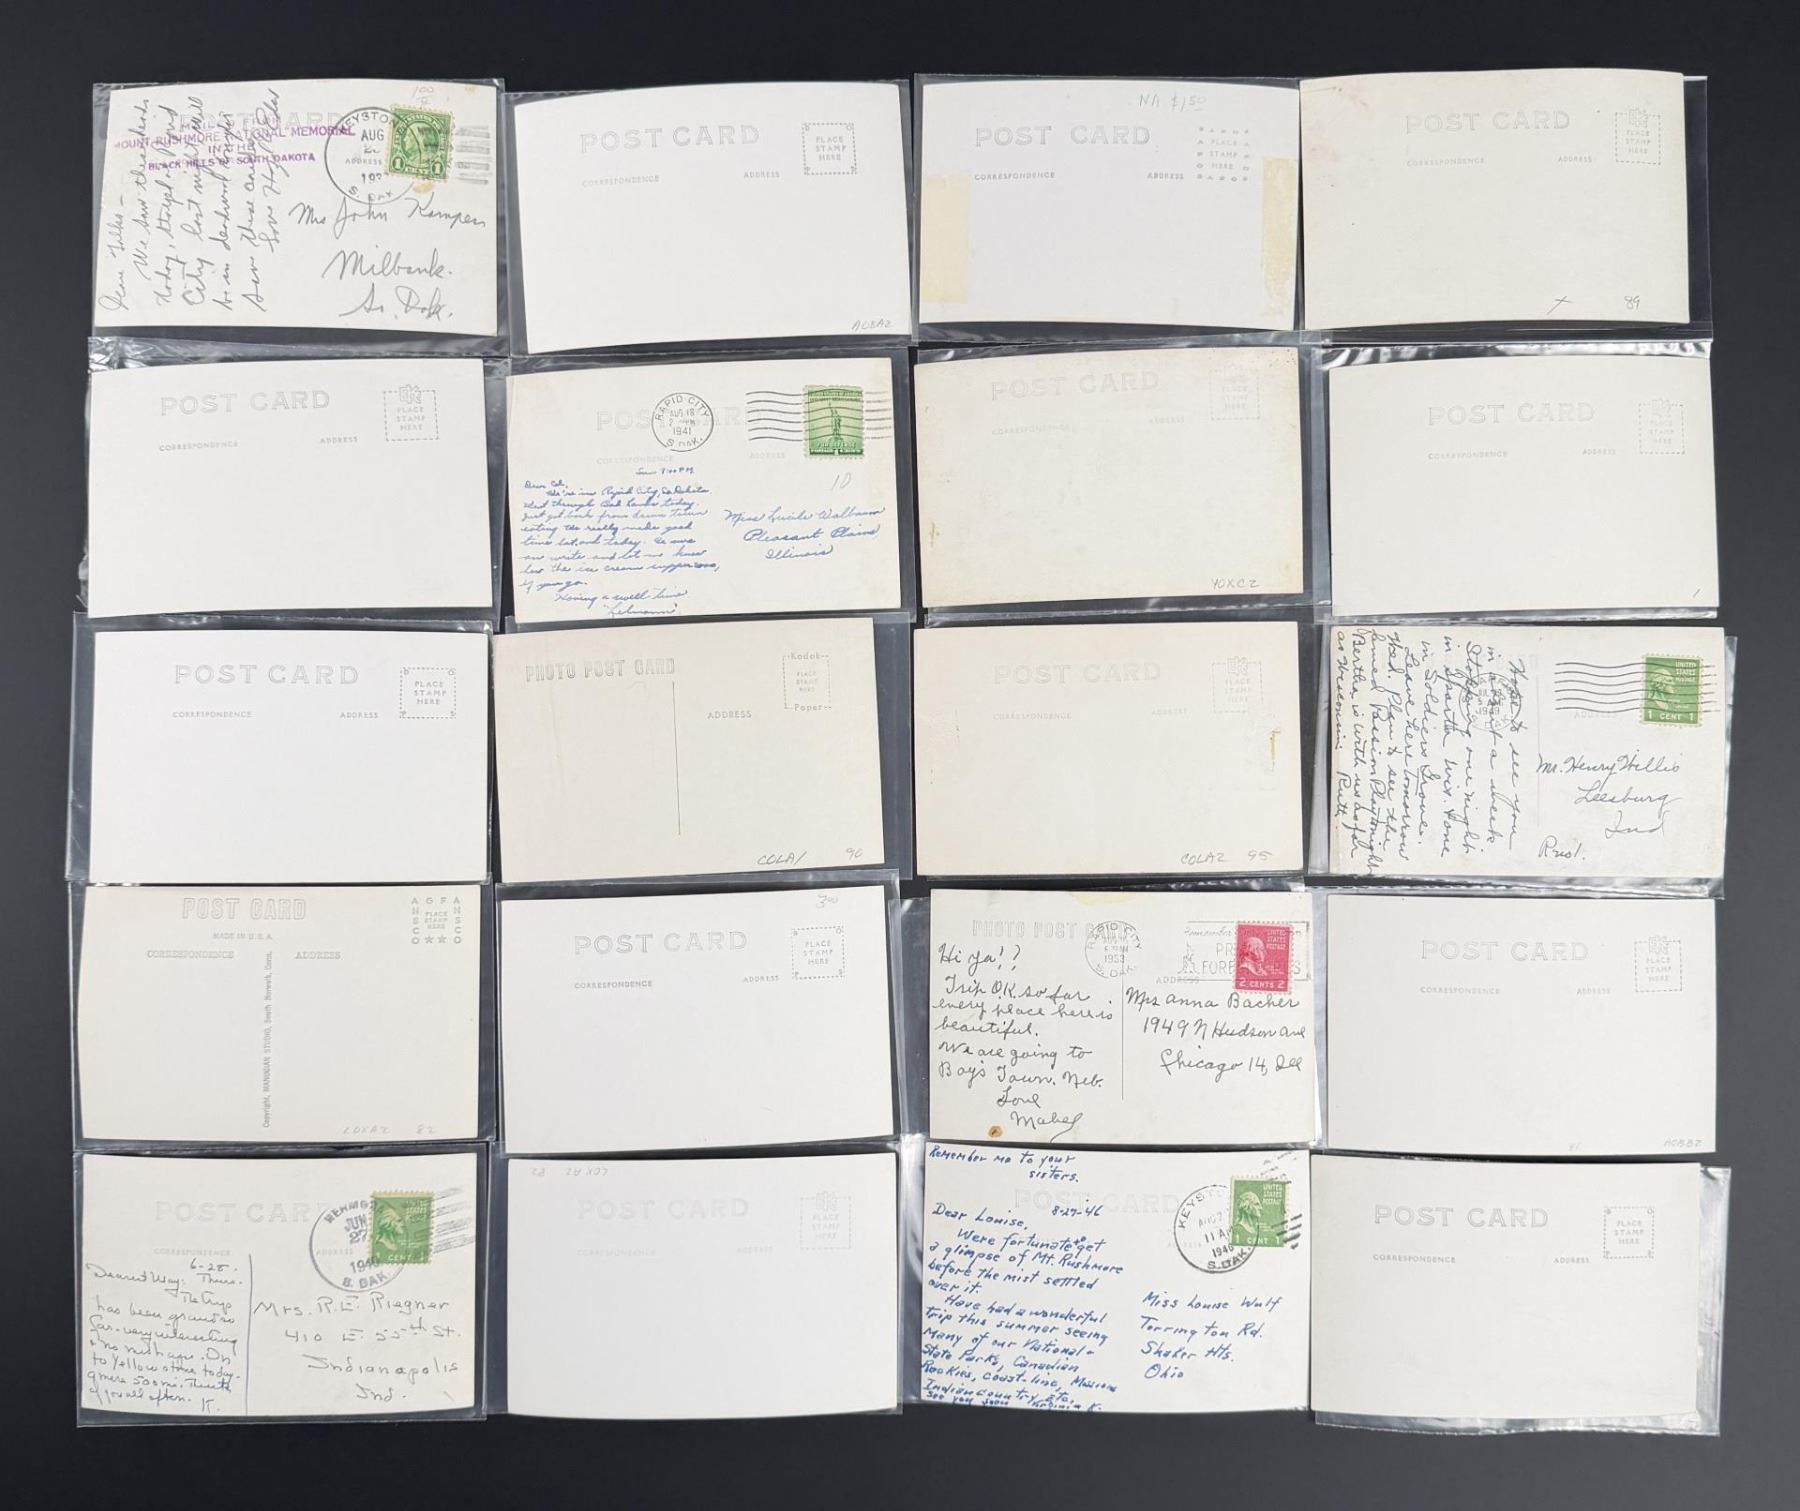 1.00
POST CARD
MOUNT RUSHMORE NATIONAL MEMORIAL
IN THE
BLACK HILLS OF SOUTH DAKOTA
ADDRESS
KEYSTONE
AUG
S. DAK
1 CENT 1
Dear Folks -
We saw these heads
today, stayed in Rapid
City last night, will
be in
Love
Mrs John Kampen
Milbank.
So. Dak.
POST CARD
CORRESPONDENCE
ADDRESS
PLACE
STAMP
HERE
AOBAZ
NA $1.50
POST CARD
CORRESPONDENCE
ADDRESS
PLACE
STAMP
HERE
POST CARD
CORRESPONDENCE
ADDRESS
PLACE
STAMP
HERE
X 89
POST CARD
CORRESPONDENCE
ADDRESS
EKC
PLACE
STAMP
HERE
POST CARD
CORRESPONDENCE
ADDRESS
RAPID CITY
AUG 18
1941
S. DAK.
10
Sun 7:00 P.M.
Dear Cel,
We're in Rapid City, So Dakota,
Went through Bad Lands today.
Just got back from down town
eating. We really made good
time Sat. and today.
write and let me know
how the ice cream supper was,
if you go.
Having a swell time
Miss Lucile Walbaum
Pleasant Plains
Illinois
POST CARD
CORRESPONDENCE
ADDRESS
PLACE
STAMP
HERE
YOXCZ
POST CARD
CORRESPONDENCE
ADDRESS
EKC
PLACE
STAMP
HERE
1
POST CARD
CORRESPONDENCE
ADDRESS
PLACE
STAMP
HERE
PHOTO POST CARD
ADDRESS
Kodak
PLACE
STAMP
HERE
Paper
COLA1 90
POST CARD
CORRESPONDENCE
ADDRESS
EKC
PLACE
STAMP
HERE
COLAZ 95
ADDRESS
1949
UNITED
STATES
POSTAGE
1 CENT 1
Hope to see you
in about a week
Stopping one night
in Sparta Wis. & one
in Soldiers Grove.
Leave here tomorrow
Wed. Plan to see the
famed Passion Play tonight
Bertha is with us as far
as Wisconsin. Ruth
Mr. Henry Willis
Leesburg
Ind
POST CARD
MADE IN U.S.A.
CORRESPONDENCE
ADDRESS
AGFA
ANSCO
PLACE
STAMP
HERE
ANSCO
Copyright, MANUGIAN STUDIO, South Norwalk, Conn.
LOXAZ 82
3.00
POST CARD
CORRESPONDENCE
ADDRESS
PLACE
STAMP
HERE
PHOTO POST CARD
ADDRESS
RAPID CITY
AUG
1953
S. DAK.
UNITED
STATES
POSTAGE
2 CENTS 2
Hi Ya!?
Trip O.K. so far
every place here is
beautiful.
We are going to
Boys Town. Neb.
Love
Mabel
Mrs Anna Bacher
1949 N Hudson Ave
Chicago 14, Ill
POST CARD
CORRESPONDENCE
ADDRESS
EKC
PLACE
STAMP
HERE
AOBBZ
POST CARD
CORRESPONDENCE
ADDRESS
HERMOSA
JUN
27
1940
S. DAK
1 CENT
6-28.
Dearest Way: Thurs.
The trip
has been grand so
far - very interesting
& no mishaps. On
to Yellowstone today -
mere 500 mi. Think
of you all often. K.
Mrs. R. E. Riegner
410 E. 55th St.
Indianapolis
Ind.
LOXAZ 82
POST CARD
CORRESPONDENCE
ADDRESS
PLACE
STAMP
HERE
Remember me to your
sisters.
POST CARD
KEYSTONE
AUG 27
11 AM
1946
S. DAK.
UNITED
STATES
POSTAGE
1 CENT 1
Dear Louise, 8-27-46
Were fortunate to get
a glimpse of Mt. Rushmore
before the mist settled
over it.
Have had a wonderful
trip this summer seeing
many of our National &
State Parks, Canadian
Rockies, coast-line, Missions
Indian country, etc.
See you soon Virginia K.
Miss Louise Wulf
Torrington Rd.
Shaker Hts.
Ohio
POST CARD
CORRESPONDENCE
ADDRESS
PLACE
STAMP
HERE